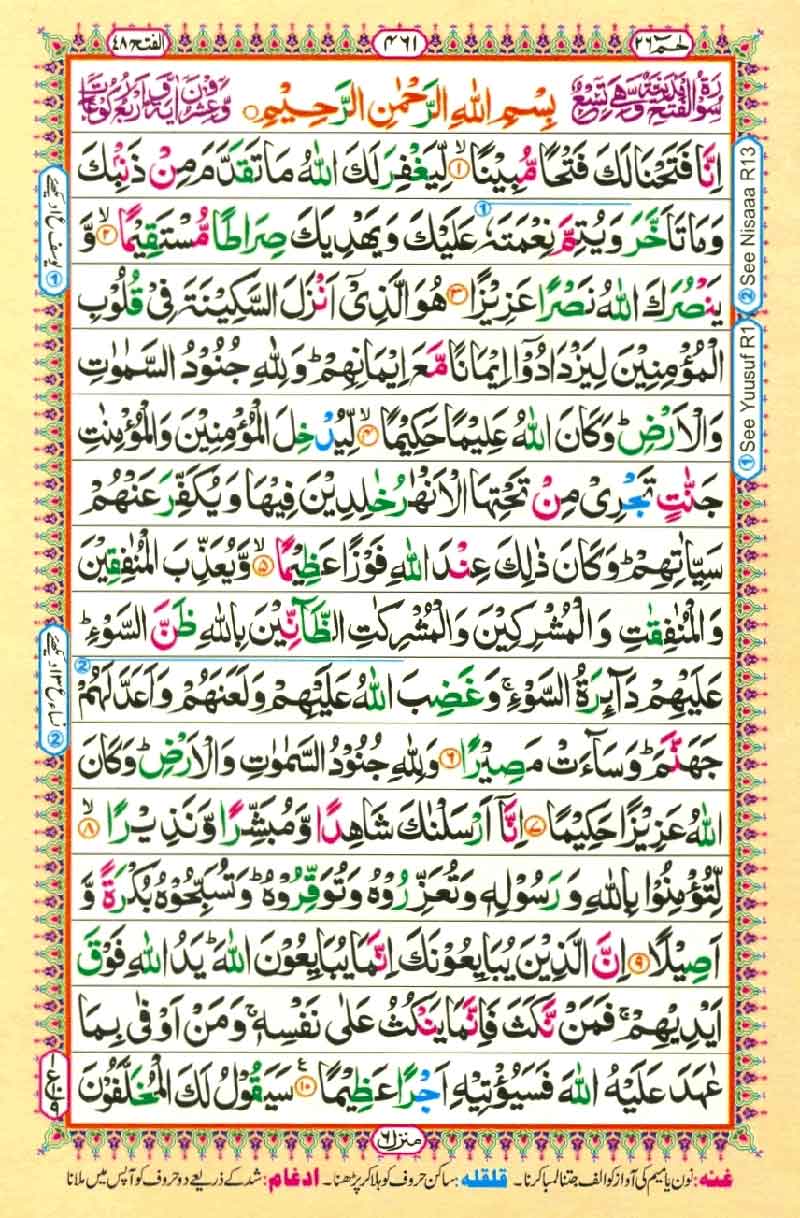 حٰمٓ ٢٦
٤٦١
الفتح ٤٨
سُوْرَةُ الْفَتْحِ مَدَنِيَّةٌ وَّهِيَ تِسْعٌ
بِسْمِ اللّٰهِ الرَّحْمٰنِ الرَّحِيْمِ
وَّعِشْرُوْنَ اٰيَةً وَّاَرْبَعُ رُكُوْعَاتٍ
اِنَّا فَتَحْنَا لَكَ فَتْحًا مُّبِيْنًا ۙ‏ ١ لِّيَغْفِرَ لَكَ اللّٰهُ مَا تَقَدَّمَ مِنْ ذَنْۢبِكَ
وَمَا تَاَخَّرَ وَيُتِمَّ نِعْمَتَهٗ عَلَيْكَ وَيَهْدِيَكَ صِرَاطًا مُّسْتَقِيْمًا ۙ ٢ وَّ
يَنْصُرَكَ اللّٰهُ نَصْرًا عَزِيْزًا ٣ هُوَ الَّذِيْۤ اَنْزَلَ السَّكِيْنَةَ فِيْ قُلُوْبِ
الْمُؤْمِنِيْنَ لِيَزْدَادُوْۤا اِيْمَانًا مَّعَ اِيْمَانِهِمْ ؕ وَلِلّٰهِ جُنُوْدُ السَّمٰوٰتِ
وَالْاَرْضِ ؕ وَكَانَ اللّٰهُ عَلِيْمًا حَكِيْمًا ۙ ٤ لِّيُدْخِلَ الْمُؤْمِنِيْنَ وَالْمُؤْمِنٰتِ
جَنّٰتٍ تَجْرِيْ مِنْ تَحْتِهَا الْاَنْهٰرُ خٰلِدِيْنَ فِيْهَا وَيُكَفِّرَ عَنْهُمْ
سَيِّاٰتِهِمْ ؕ وَكَانَ ذٰلِكَ عِنْدَ اللّٰهِ فَوْزًا عَظِيْمًا ۙ ٥ وَّيُعَذِّبَ الْمُنٰفِقِيْنَ
وَالْمُنٰفِقٰتِ وَالْمُشْرِكِيْنَ وَالْمُشْرِكٰتِ الظَّآنِّيْنَ بِاللّٰهِ ظَنَّ السَّوْءِ ؕ
عَلَيْهِمْ دَآئِرَةُ السَّوْءِ ۚ وَغَضِبَ اللّٰهُ عَلَيْهِمْ وَلَعَنَهُمْ وَاَعَدَّ لَهُمْ
جَهَنَّمَ ؕ وَسَآءَتْ مَصِيْرًا ٦ وَلِلّٰهِ جُنُوْدُ السَّمٰوٰتِ وَالْاَرْضِ ؕ وَكَانَ
اللّٰهُ عَزِيْزًا حَكِيْمًا ٧ اِنَّاۤ اَرْسَلْنٰكَ شَاهِدًا وَّمُبَشِّرًا وَّنَذِيْرًا ۙ ٨
لِّتُؤْمِنُوْا بِاللّٰهِ وَرَسُوْلِهٖ وَتُعَزِّرُوْهُ وَتُوَقِّرُوْهُ ؕ وَتُسَبِّحُوْهُ بُكْرَةً وَّ
اَصِيْلًا ٩ اِنَّ الَّذِيْنَ يُبَايِعُوْنَكَ اِنَّمَا يُبَايِعُوْنَ اللّٰهَ ؕ يَدُ اللّٰهِ فَوْقَ
اَيْدِيْهِمْ ۚ فَمَنْ نَّكَثَ فَاِنَّمَا يَنْكُثُ عَلٰى نَفْسِهٖ ۚ وَمَنْ اَوْفٰى بِمَا
عٰهَدَ عَلَيْهُ اللّٰهَ فَسَيُؤْتِيْهِ اَجْرًا عَظِيْمًا ١٠ ع سَيَقُوْلُ لَكَ الْمُخَلَّفُوْنَ
② See Nisaaa R13
① See Yuusuf R1
① یوسف ع ا دیکھئے
② نساء ع ١٣ دیکھئے
منزل ٦
غنه: نون یا میم کی آواز کو الف جتنا لمبا کرنا ۔ قلقله: ساکن حروف کو ہلا کر پڑھنا ۔ ادغام: شد کے ذریعے دو حروف کو آپس میں ملانا